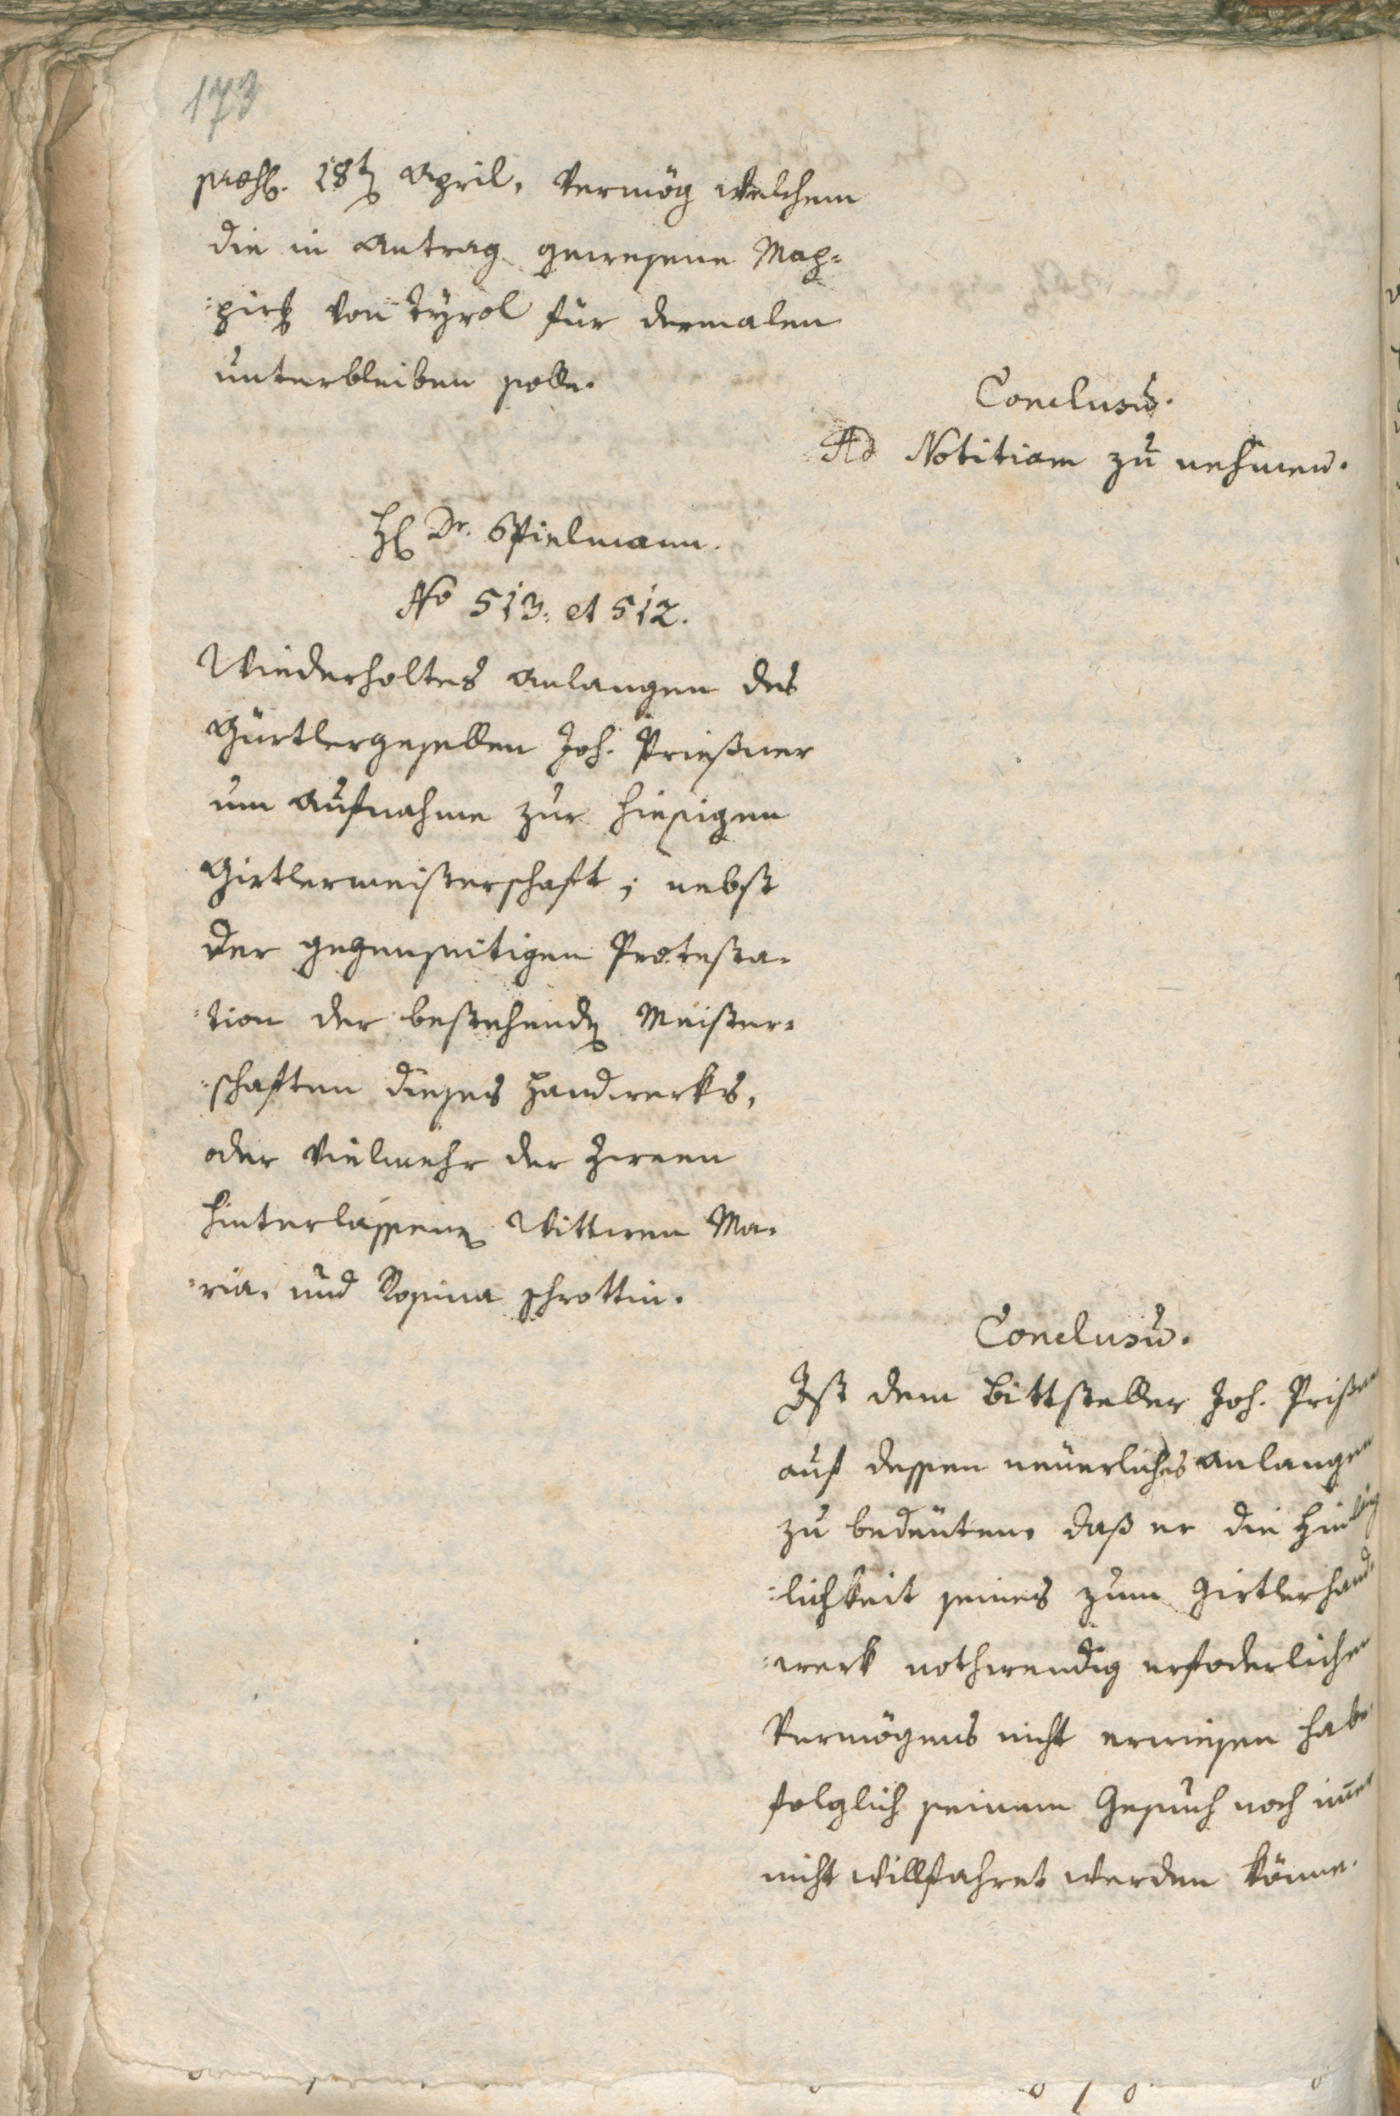 173
praes. 28t April, Vermög welchem
die in Antrag gewesene Map-
:pirg von Tyrol für dermalen
unterbleiben solle.
Conclusũ.
Ad Notitiam zu nehmen.
H Dr. Spielmann.
No 513. et 512.
Wiederholtes Anlangen des
Gürtlergesellen Joh. Prießner
um Aufnahme zur hiesigen
Girtlermeisterschaft; nebst
der gegenseitigen Protesta-
:tion der bestehendn Meister-
:schaften dieses Handwerks,
oder Vielmehr der Zween
hinterlassenen Wittwen Ma-
:ria, und Rosina Schrottin.
Conclusũ.
Ist dem Bittsteller Joh. Prißner
auf dessen neuerliches Anlangen
zu bedeuten, daß er die Hinläng
:lichkeit seines zum Girtlerhand-
:werk nothwendig erfoderlichen
Vermögens nicht erwiesen habe,
folglich seinem Gesuch noch im̄er
nicht willfahret werden könne.